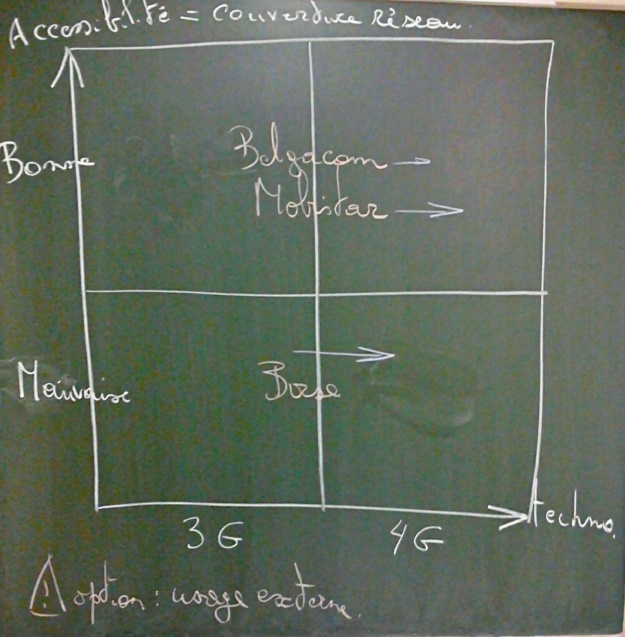 Accessibilité = couverture réseau.
Bonne
Belgacom →
Mobistar →
Mauvaise
→
Base
Techno.
3G 4G
⚠ option : usage externe.